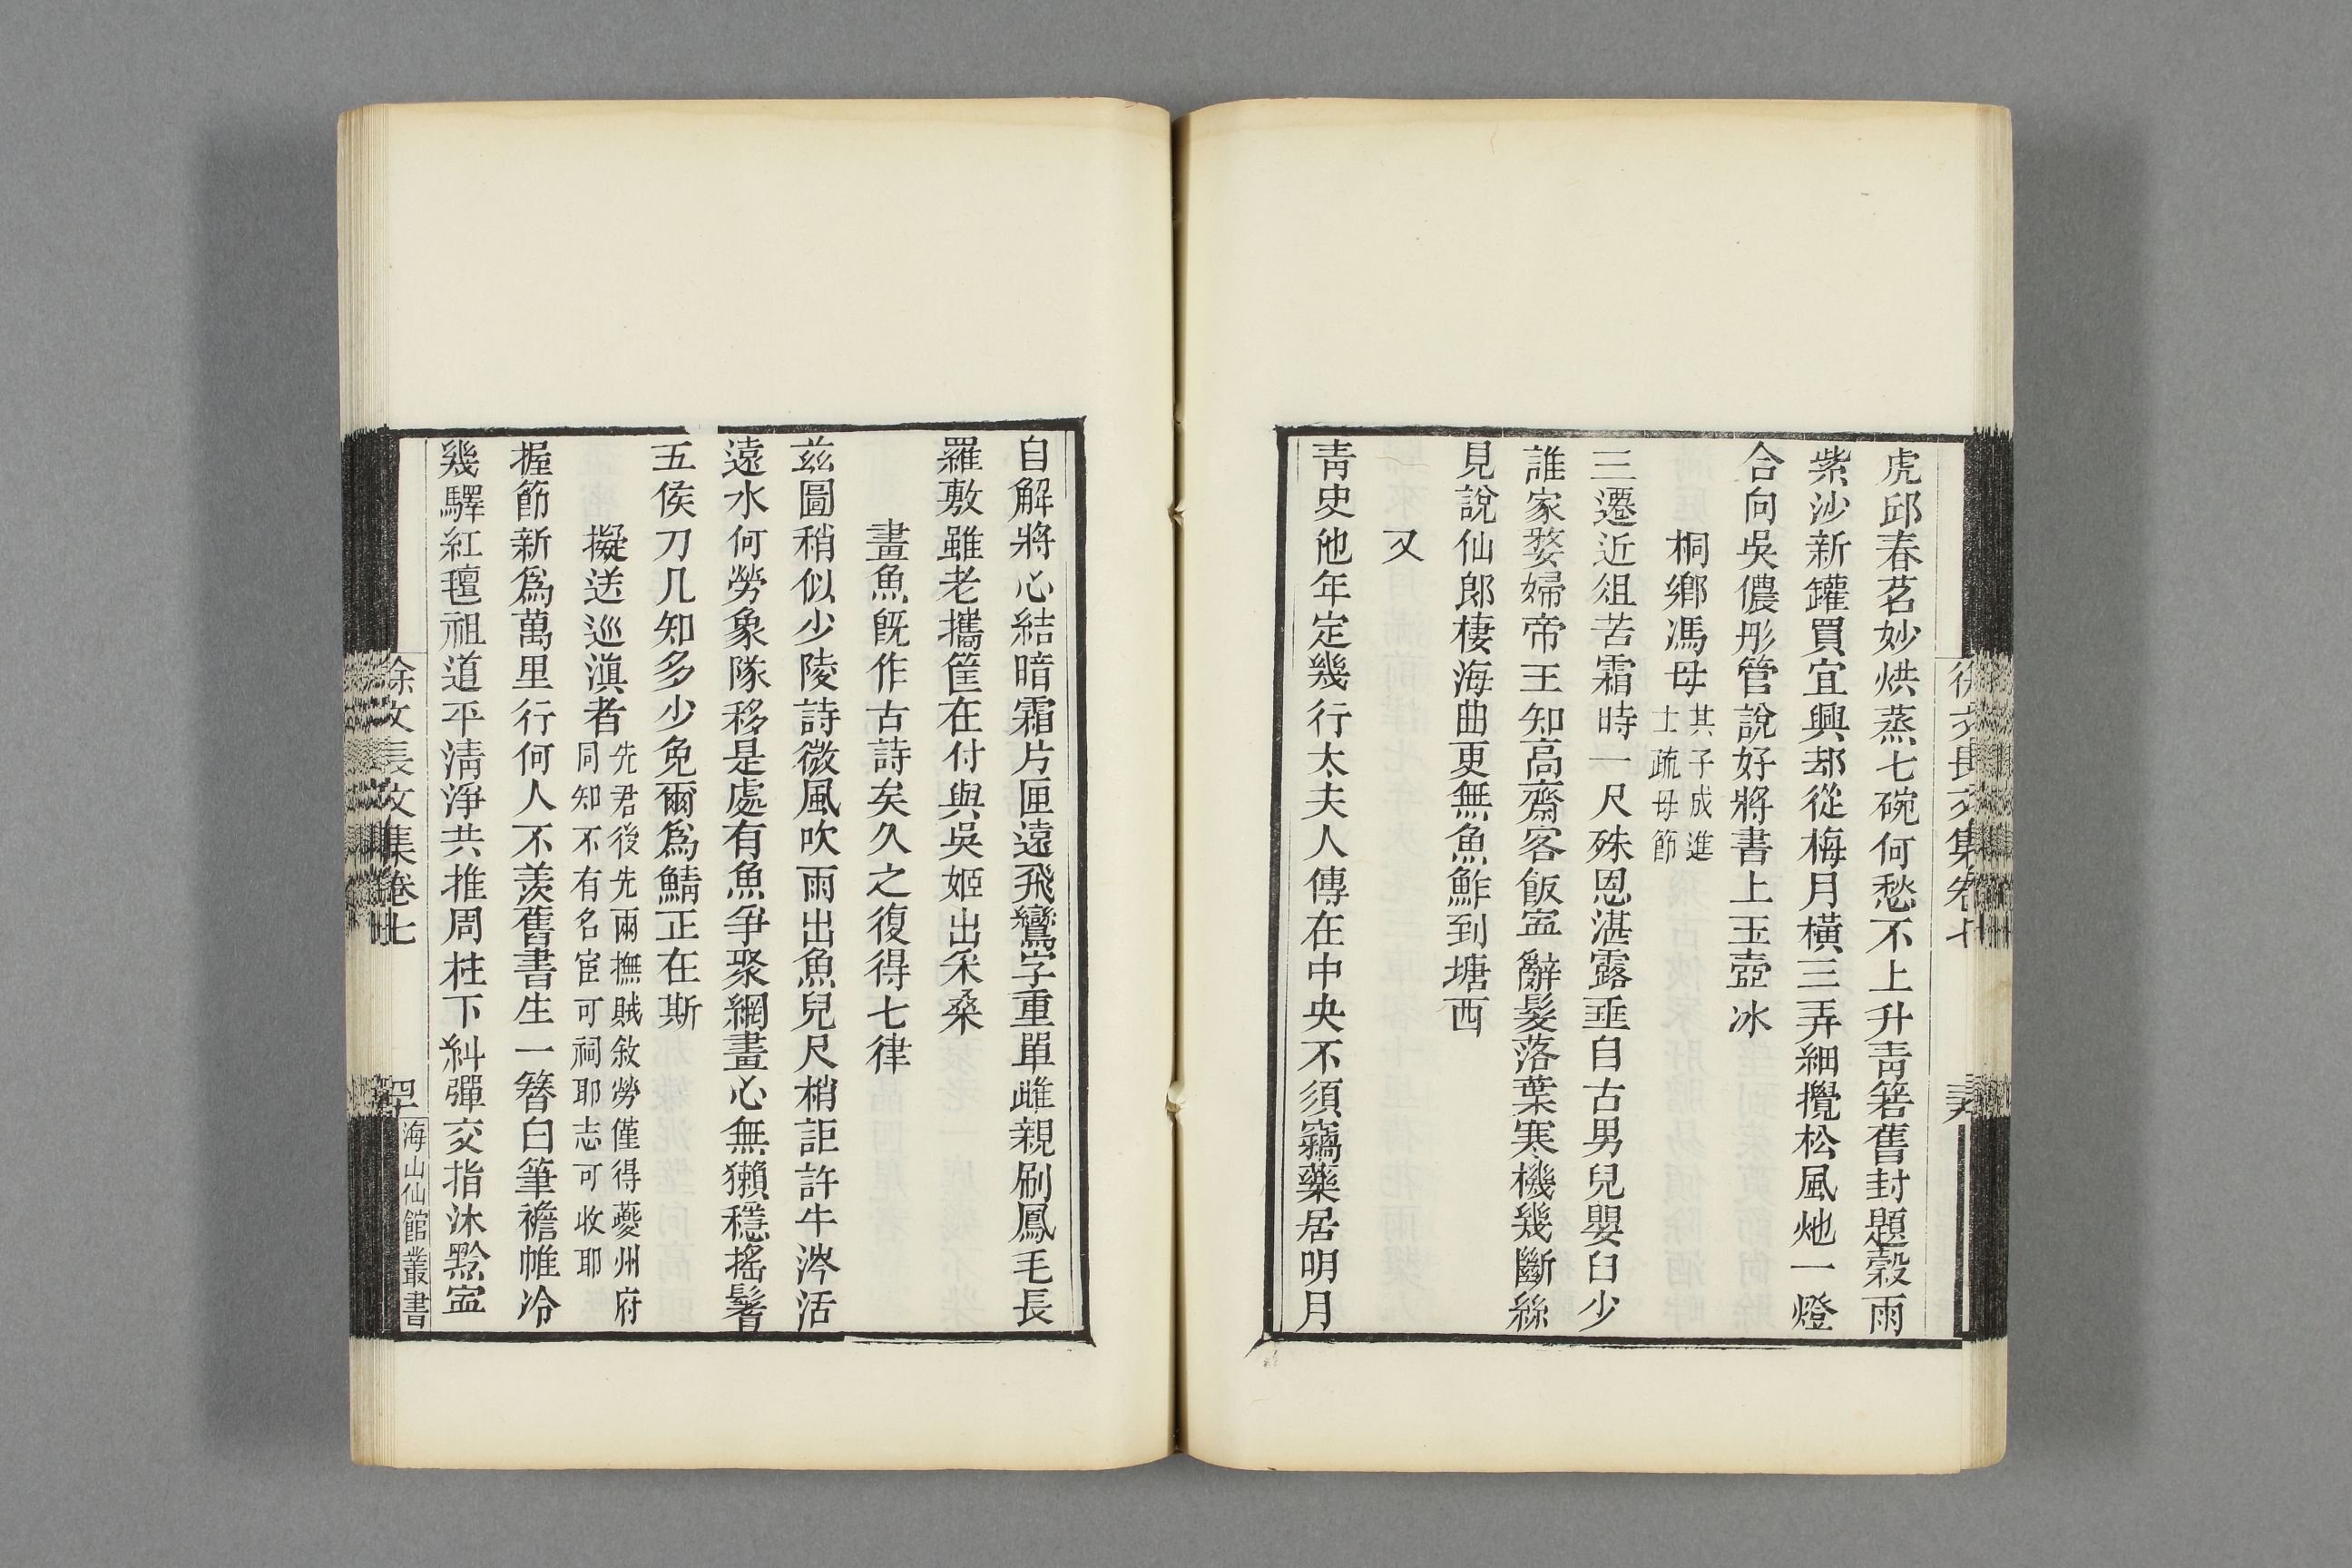 虎邱春茗妙烘蒸七碗何愁不上升靑箬舊封題穀雨
紫沙新罐買宜興却從梅月橫三弄細攪松風灺一燈
合向吳儂彤管說好將書上玉壺冰
桐鄉馮母
其子成進
士疏母節
三遷近俎苦霜時一尺殊恩湛露垂自古男兒嬰臼少
誰家嫠婦帝王知高齋客飯寍辭髮落葉寒機幾斷絲
見說仙郎棲海曲更無魚鮓到塘西
又
靑史他年定幾行太夫人傳在中央不須竊藥居明月
自解將心結暗霜片匣遠飛鸞字重單雌親刷鳳毛長
羅敷雖老攜筐在付與吳姬出采桑
畫魚旣作古詩矣久之復得七律
茲圖稍似少陵詩微風吹雨出魚兒尺梢詎許牛涔活
遠水何勞象隊移是處有魚爭聚網畫心無獺穩搖鬐
五侯刀几知多少免爾爲鯖正在斯
擬送巡滇者
先君後先兩撫賊敘勞僅得夔州府
同知不有名宦可祠耶志可收耶
握節新爲萬里行何人不羨舊書生一簪白筆襜帷冷
幾驛紅氊祖道平淸淨共推周柱下糾彈交指沐黔寍
徐文長文集卷七
海山仙館叢書